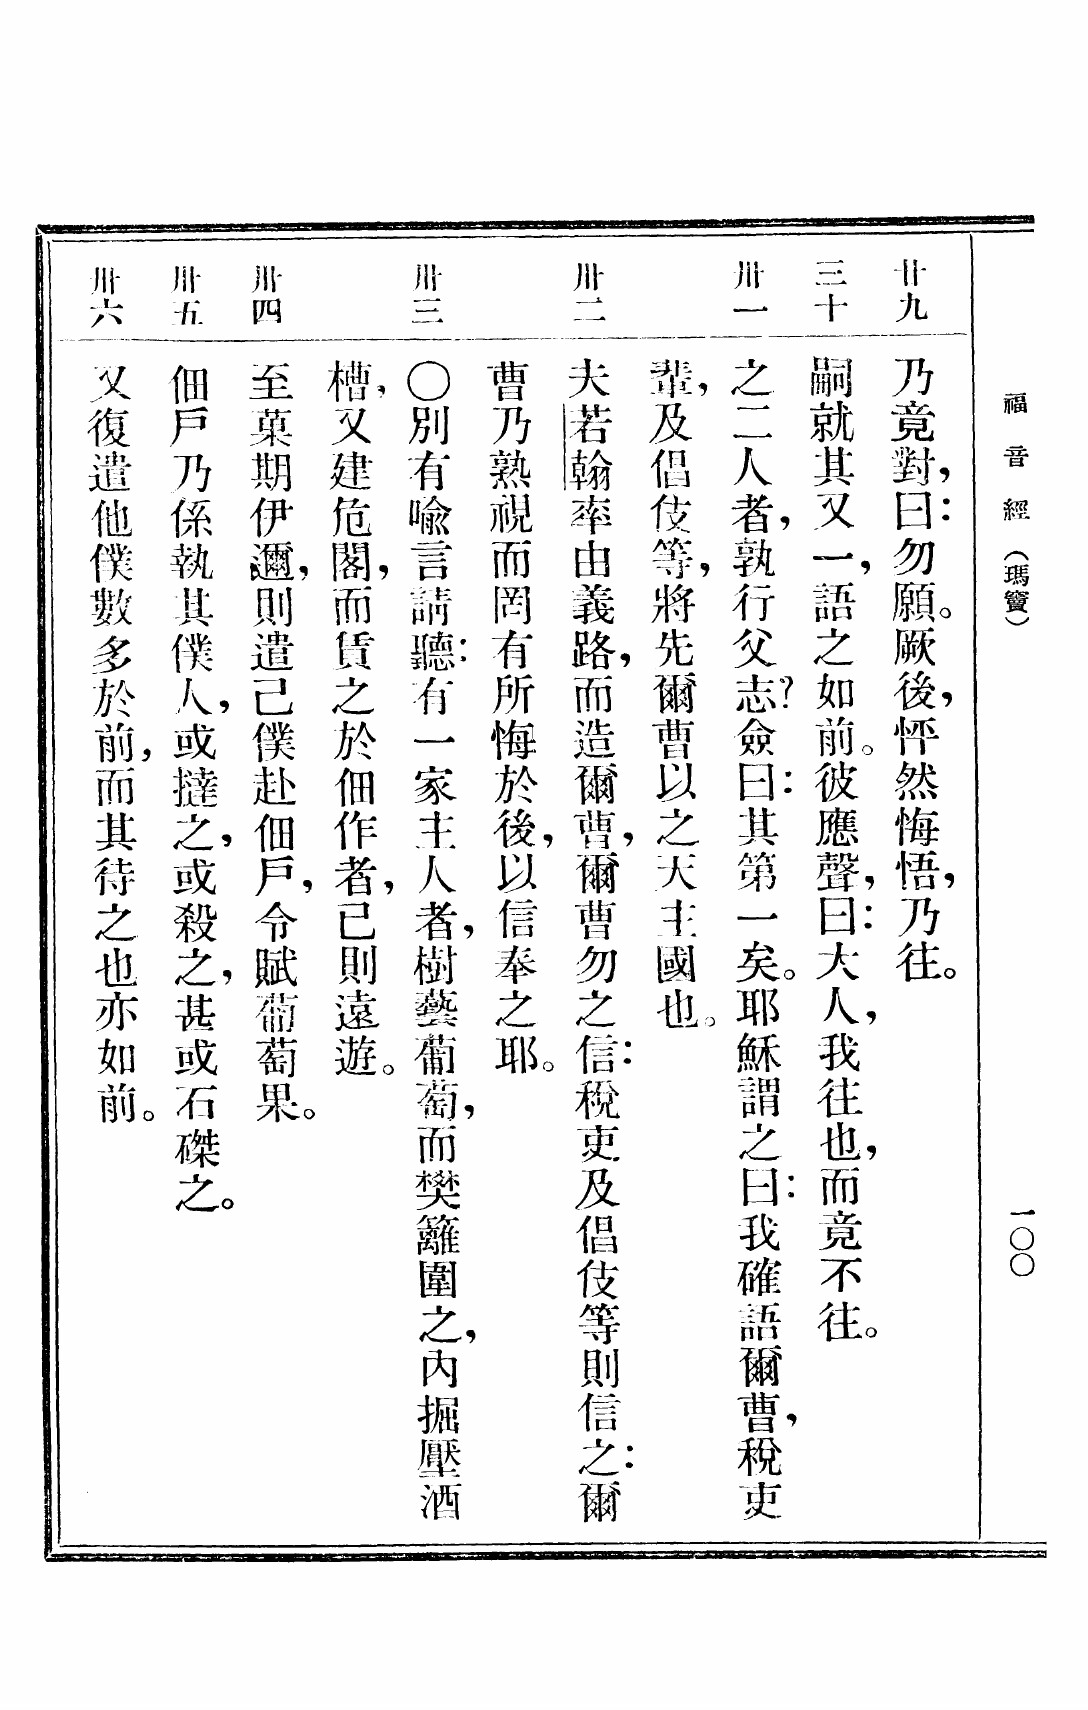 福音經（瑪竇） 一〇〇
廿九 乃竟對，曰：勿願。厥後，怦然悔悟，乃往。
三十 嗣就其又一，語之如前。彼應聲，曰：大人，我往也，而竟不往。
卅一 之二人者，孰行父志？僉曰：其第一矣。耶穌謂之曰：我確語爾曹，稅吏
輩，及倡伎等，將先爾曹以之天主國也。
卅二 夫若翰率由義路，而造爾曹，爾曹勿之信：稅吏及倡伎等則信之：爾
曹乃熟視而罔有所悔於後，以信奉之耶。
卅三 〇別有喩言請聽：有一家主人者，樹藝葡萄，而樊籬圍之，內掘壓酒
槽，又建危閣，而賃之於佃作者，已則遠遊。
卅四 至菓期伊邇，則遣己僕赴佃戶，令賦葡萄果。
卅五 佃戶乃係執其僕人，或撻之，或殺之，甚或石磔之。
卅六 又復遣他僕數多於前，而其待之也亦如前。